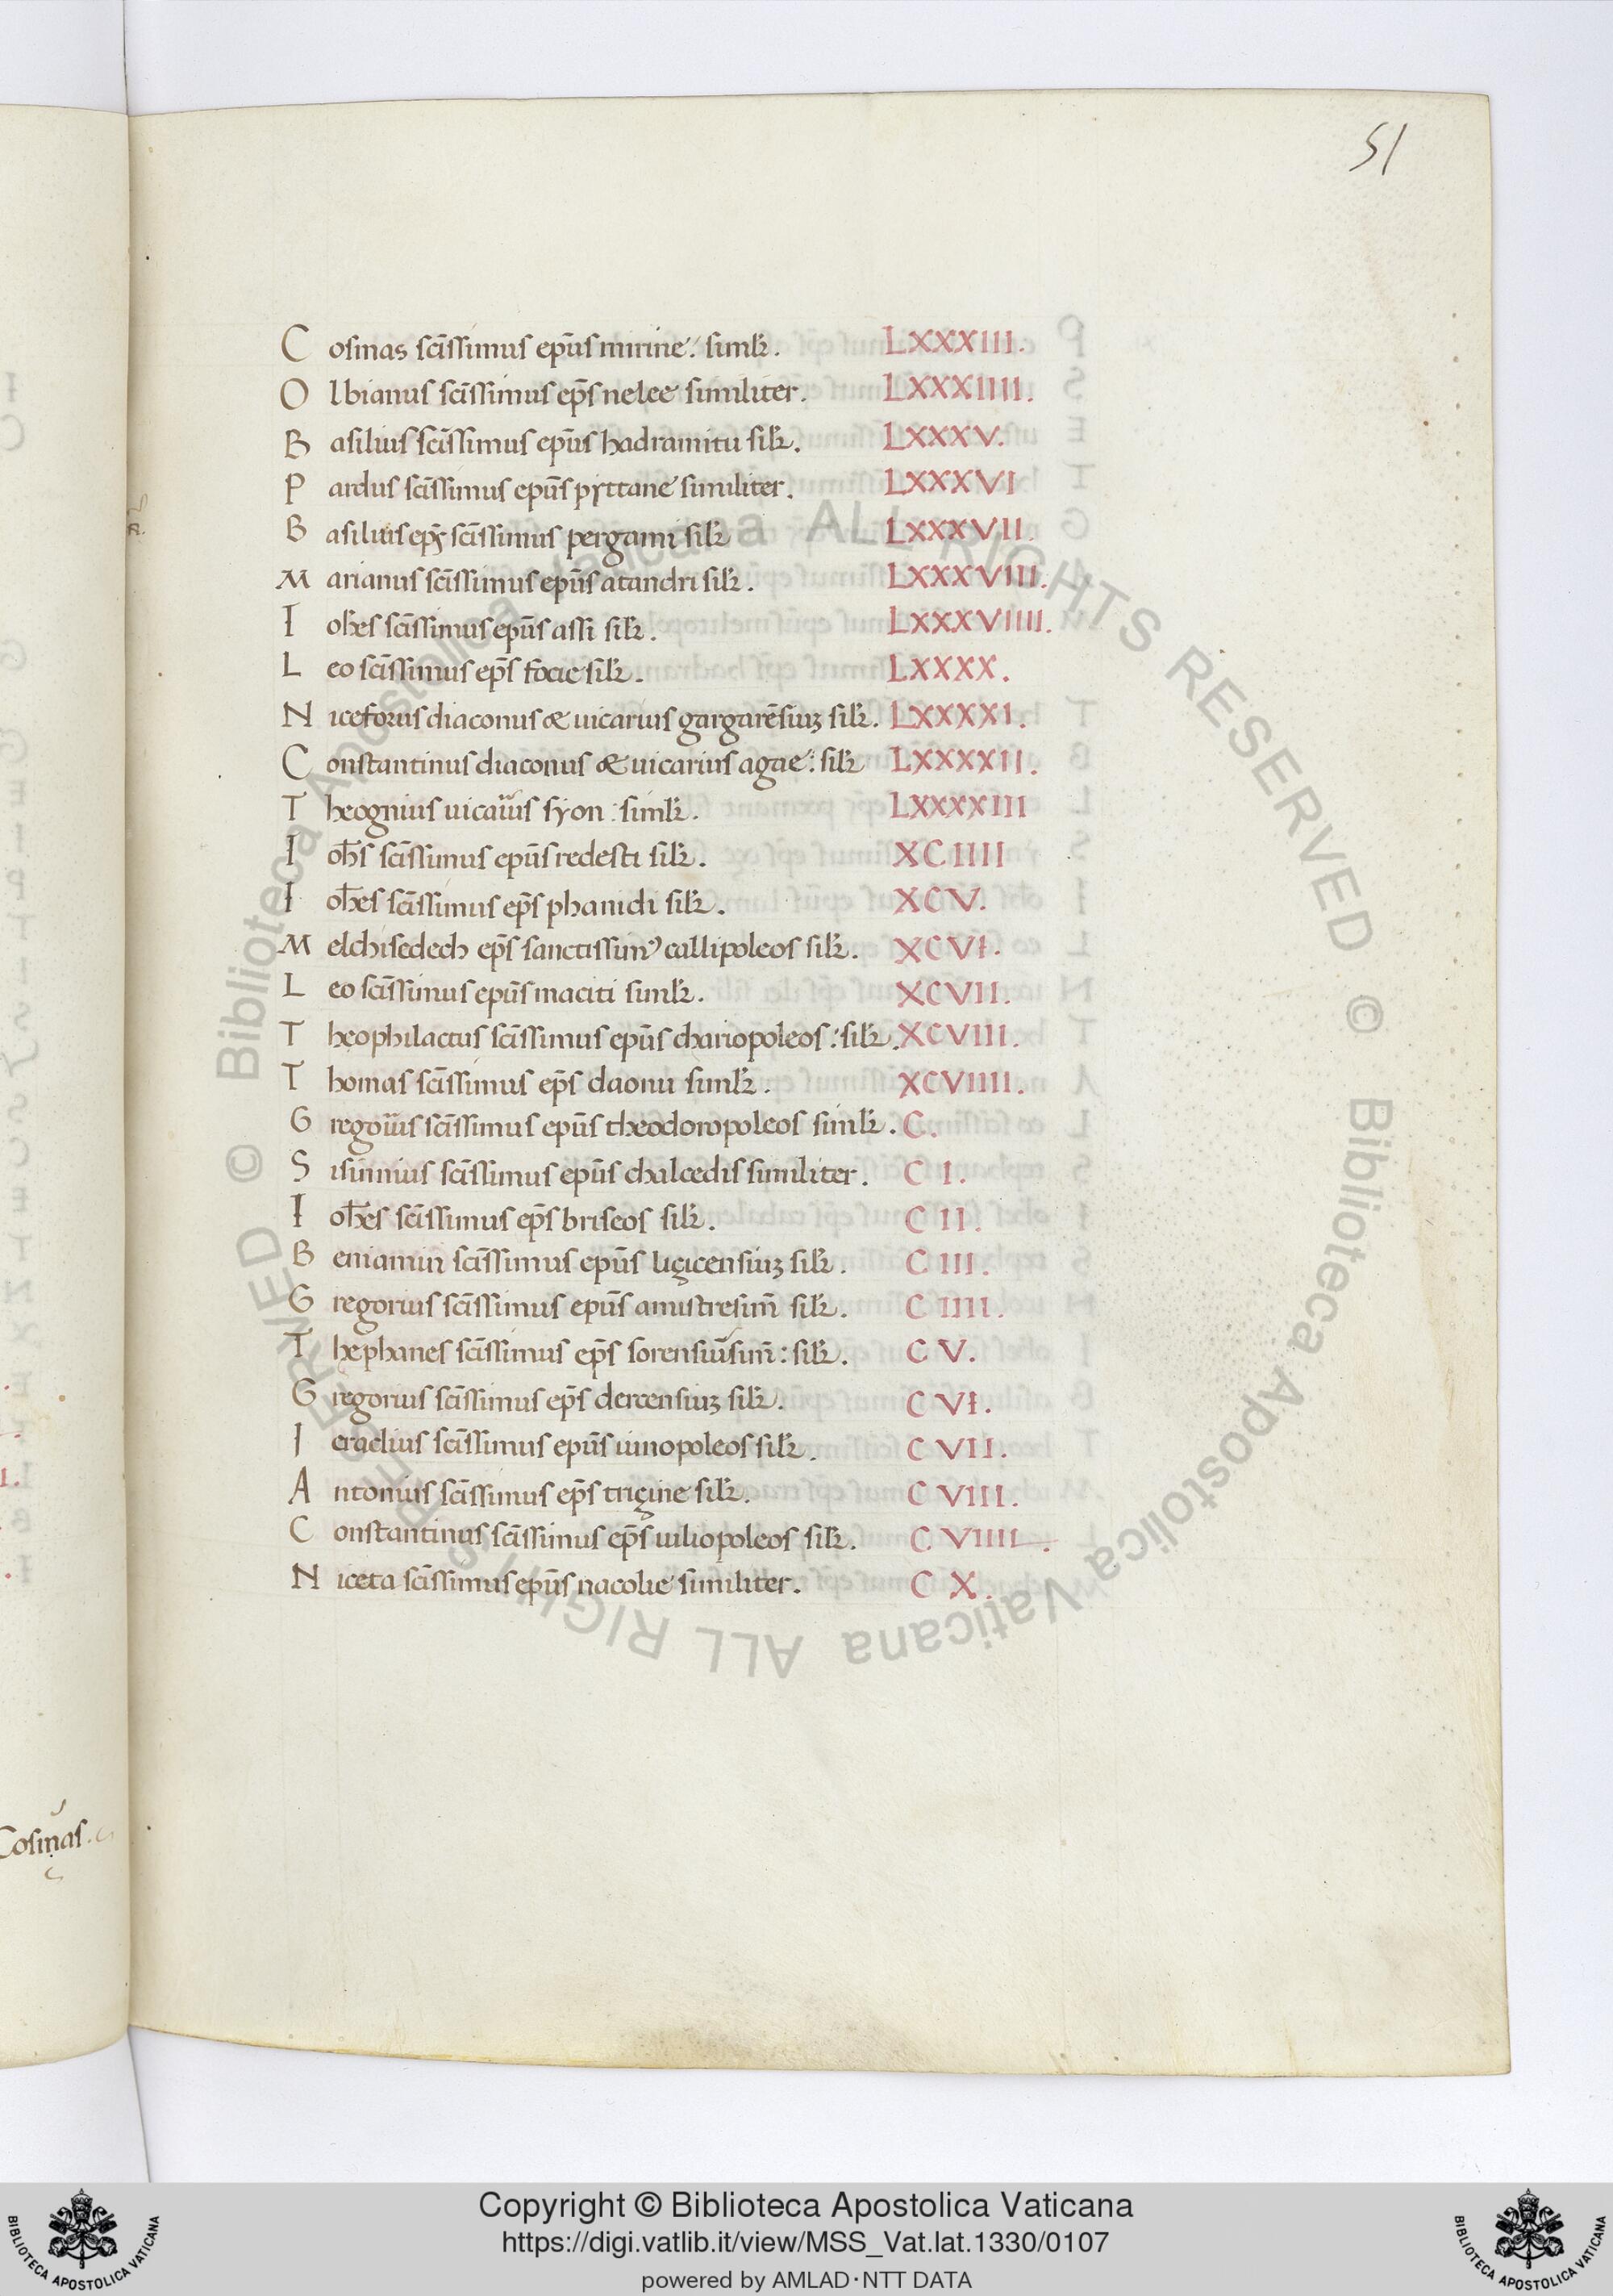 51
Cosmas sc̄issimus ep̄us mirine: similr̄. LXXXIII.
Olbianus sc̄issimus ep̄s nelee similiter. LXXXIIII.
Basilius sc̄issimus ep̄us hadramitu silr̄. LXXXV.
Pardus sc̄issimus ep̄us pyttane similiter. LXXXVI
Basilius ep̄s sc̄issimus pergami silr̄ LXXXVII.
Marianus sc̄issimus ep̄us atandri silr̄. LXXXVIII.
Ioh̄es sc̄issimus ep̄us assi silr̄. LXXXVIIII.
Leo sc̄issimus ep̄s focie silr̄. LXXXX.
Niceforus diaconus & uicarius gargarēsiuꝫ silr̄. LXXXXI.
Constantinus diaconus & uicarius agae: silr̄ LXXXXII.
Theognius uicarius syon: similr̄. LXXXXIII
Ioh̄s sc̄issimus ep̄us redesti silr̄. XCIIII
Ioh̄es sc̄issimus ep̄s phanidi silr̄. XCV.
Melchisedech ep̄s sanctissimꝰ callipoleos silr̄. XCVI.
Leo sc̄issimus ep̄us maciti similr̄. XCVII.
Theophilactus sc̄issimus ep̄us chariopoleos: silr̄. XCVIII.
Thomas sc̄issimus ep̄s daonu similr̄. XCVIIII.
Gregorius sc̄issimus ep̄us theodoropoleos similr̄. C.
Sisinnius sc̄issimus ep̄us chalcedis similiter. C I.
Ioh̄es sc̄issimus ep̄s briseos silr̄. C II.
Beniamin sc̄issimus ep̄us liçicensiuꝫ silr̄. C III.
Gregorius sc̄issimus ep̄us amistresim̄ silr̄. C IIII.
Thephanes sc̄issimus ep̄s sorensiūsim̄: silr̄. C V.
Gregorius sc̄issimus ep̄s dercensiuꝫ silr̄. C VI.
Ieraclius sc̄issimus ep̄us iunopoleos silr̄. C VII.
Antonius sc̄issimus ep̄s triçine silr̄. C VIII.
Constantinus sc̄issimus ep̄s iuliopoleos silr̄. C VIIII.
Niceta sc̄issimus ep̄us nacolie similiter. C X.
Cosmas.
© Biblioteca Apostolica Vaticana ALL RIGHTS RESERVED © Biblioteca Apostolica Vaticana ALL RIGHTS RESERVED
Copyright © Biblioteca Apostolica Vaticana
https://digi.vatlib.it/view/MSS_Vat.lat.1330/0107
powered by AMLAD·NTT DATA
BIBLIOTECA APOSTOLICA VATICANA
BIBLIOTECA APOSTOLICA VATICANA